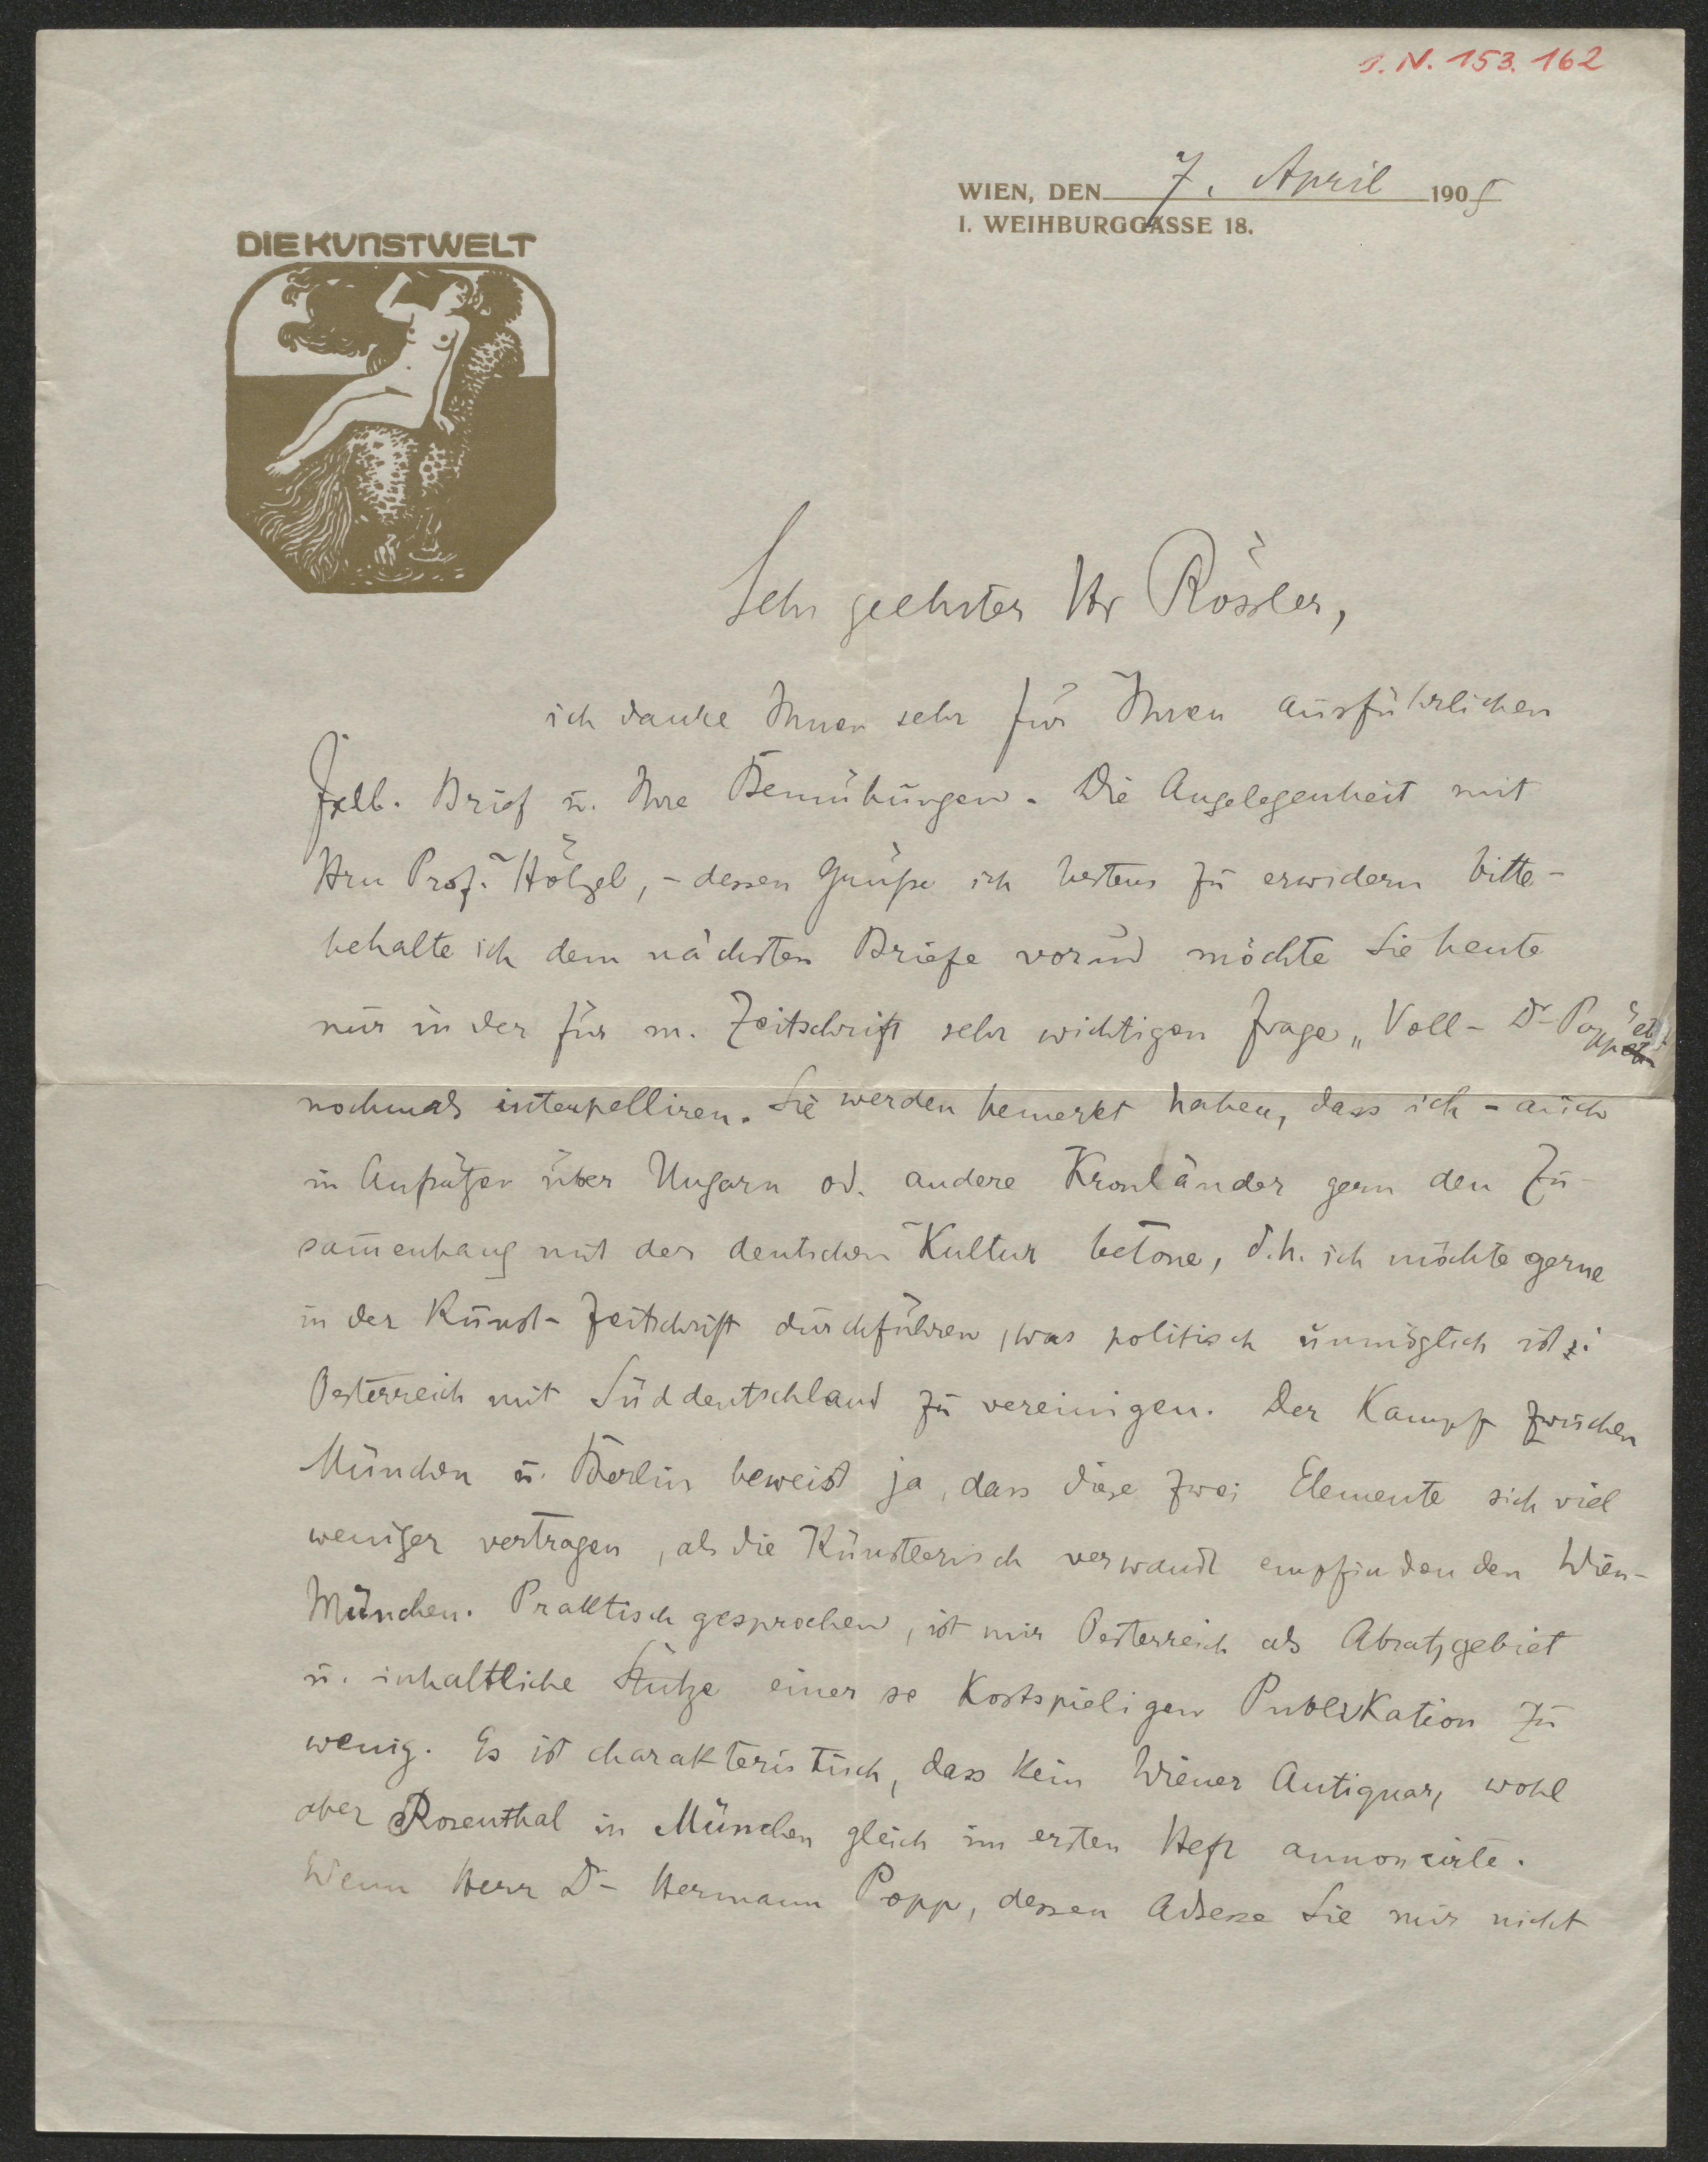 J. N. 153.162
WIEN, DEN 7. April 1905
I. WEIHBURGGASSE 18.
DIE KVNSTWELT
Sehr geehrter Hr Rössler,
ich danke Ihnen sehr für Ihren ausführlichen
Brief u. Ihre Bemühungen. Die Angelegenheit mit
Hrn Prof. Hölzel, - dessen Grüße ich bestens zu erwidern bitte -
behalte ich dem nächsten Briefe vor und möchte Sie heute
nur in der für m. Zeitschrift sehr wichtigen Frage „Voll- Dr
nochmals interpelliren. Sie werden bemerkt haben, dass ich - auch
in Aufsätzen über Ungarn od. andere Kronländer gern den Zu-
sam̄enhang mit der deutschen Kultur betone, d.h. ich möchte gerne
in der Kunst-Zeitschrift durchführen, was politisch unmöglich ist:
Oesterreich mit Süddeutschland zu vereinigen. Der Kampf zwischen
München u. Berlin beweist ja, dass diese zwei Elemente sich viel
weniger vertragen, als die künstlerisch verwandt empfindenden Wien-
München. Praktisch gesprochen, ist mir Oesterreich als Absatzgebiet
u. inhaltliche Stütze einer so kostspieligen Publikation zu
wenig. Es ist charakteristisch, dass kein Wiener Antiquar, wohl
aber Rosenthal in München gleich im ersten Heft annoncirte.
Wenn Herr Dr Hermann Popp, dessen Adresse Sie mir nicht